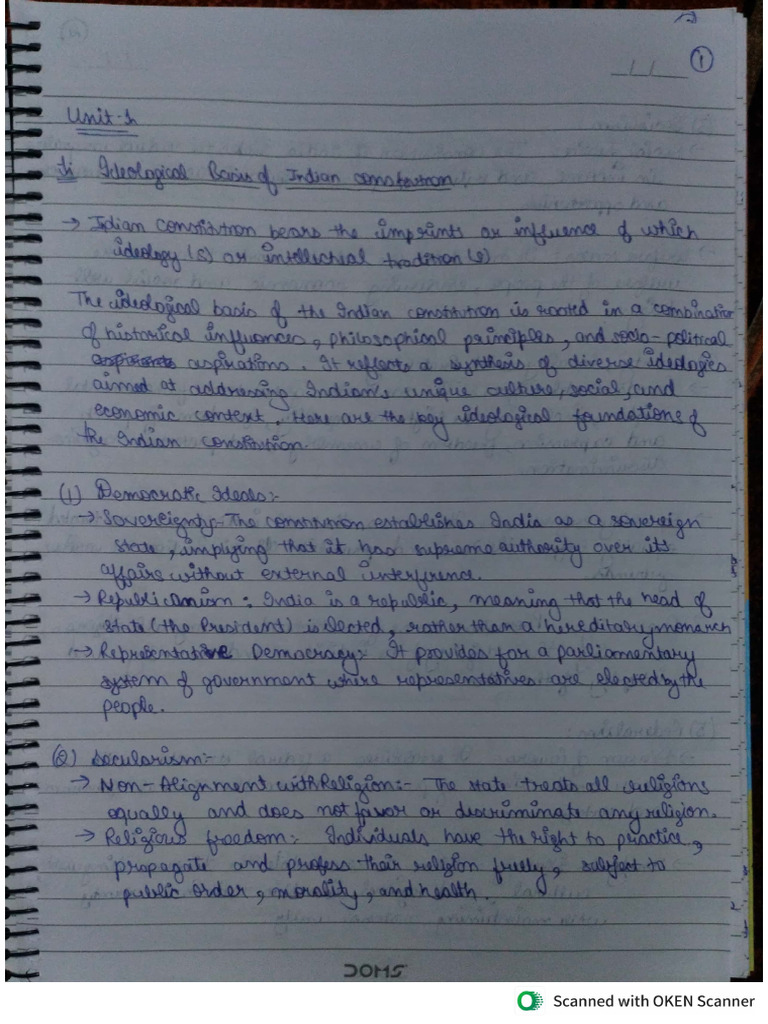 1
Unit-1
1. Ideological Basis of Indian constitution
→ Indian constitution bears the imprints or influence of which
ideology(s) or intellectual tradition(s)
The ideological basis of the Indian constitution is rooted in a combination
of historical influences, philosophical principles, and socio-political
aspirations. It reflects a synthesis of diverse ideologies
aimed at addressing Indian's unique culture, social, and
economic context. Here are the key ideological foundations of
the Indian constitution.
(1) Democratic Ideals:-
→ Sovereignty:- The constitution establishes India as a sovereign
state, implying that it has supreme authority over its
affairs without external interference.
→ Republicanism: India is a republic, meaning that the head of
state (the President) is elected, rather than a hereditary monarch
→ Representative Democracy:- It provides for a parliamentary
system of government where representatives are elected by the
people.
(2) Secularism:-
→ Non-Alignment with Religion:- The state treats all religions
equally and does not favor or discriminate any religion.
→ Religious freedom:- Individuals have the right to practice,
propagate and profess their religion freely, subject to
public order, morality, and health.
DOMS
Scanned with OKEN Scanner